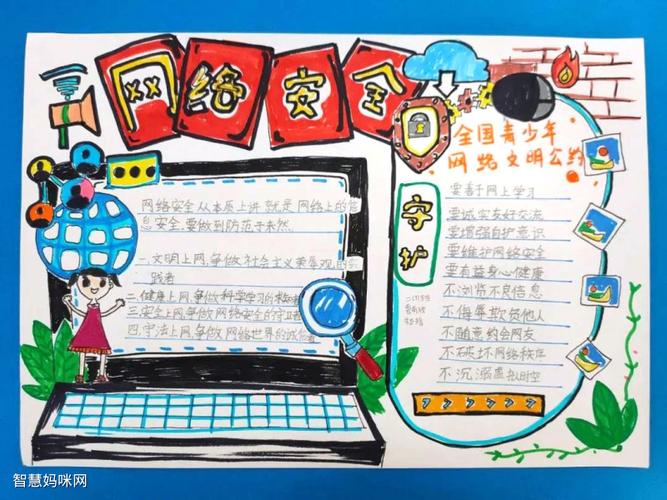 网络安全
网络安全从本质上讲就是网络上的信
息安全,要做到防范于未然
一、文明上网,争做社会主义荣辱观的实
践者
二、健康上网,争做科学学习的
三、安全上网,争做网络安全的守卫者
四、守法上网,争做网络世界的诚信者
全国青少年
网络文明公约
守护
要善于网上学习
要诚实友好交流
要增强自护意识
要维护网络安全
要有益身心健康
不浏览不良信息
不侮辱欺负他人
不随意约会网友
不破坏网络秩序
不沉溺虚拟时空
智慧妈咪网